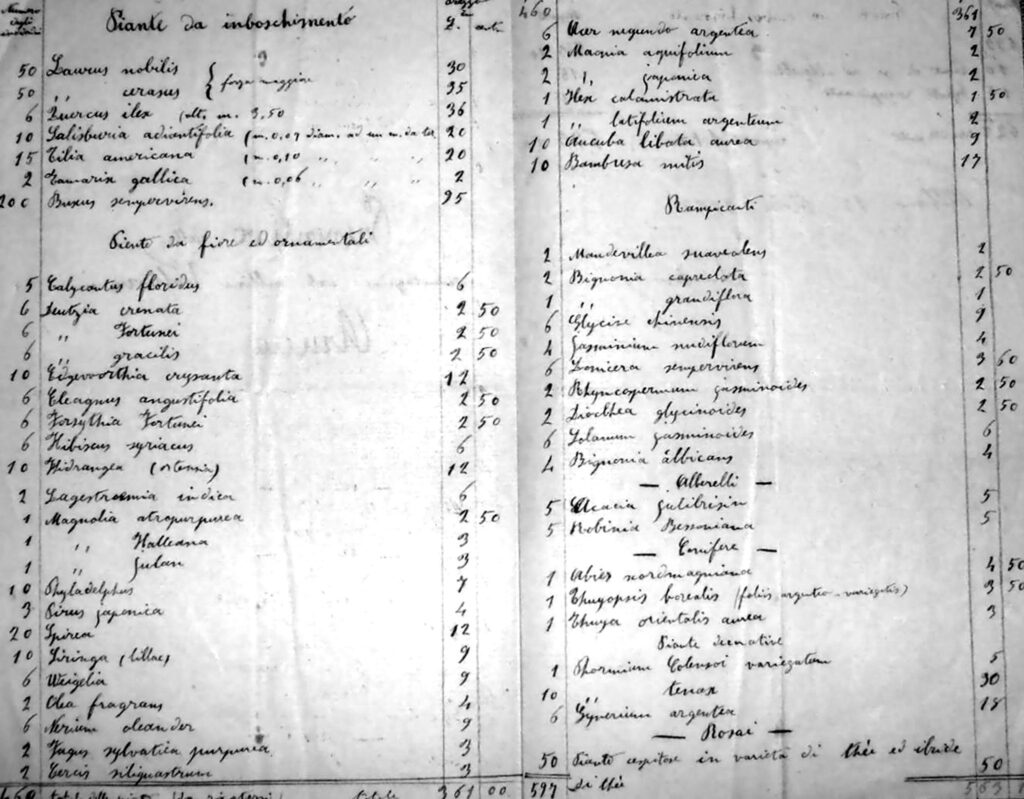 Numero degli individui
Piante da inboschimento
£. cnti
50 Laurus nobilis 30
50 ,, cerasus { forza maggiore 35
6 Quercus ilex (alt. m. 3,50 36
10 Salisburia adiantifolia (m. 0,07 diam. ad un m. da ter 20
15 Tilia americana (m. 0,10 ,, ,, ,, 20
2 Tamarix gallica (m. 0,06 ,, ,, ,, 2
200 Buxus sempervirens. 95
Piante da fiore ed ornamentali
5 Calycantus floridus 6
6 Deutzia crenata 2 50
6 ,, Fortunei 2 50
6 ,, gracilis 2 50
10 Edgevorthia crysanta 12
6 Eleagnus angustifolia 2 50
6 Forsythia Fortunei 2 50
6 Hibiscus syriacus 6
10 Hidrangea (ortensia) 12
2 Lagestroemia indica 6
1 Magnolia atropurpurea 2 50
1 ,, Halleana 3
1 ,, Julan 3
10 Phyladelphus 7
3 Pirus japonica 4
20 Spirea 12
10 Siringa (lillac) 9
6 Weigelia 9
2 Olea fragrans 4
6 Nerium oleander 9
2 Fagus sylvatica purpurea 3
2 Cercis siliquastrum 3
460 totale 361 00
460 361
6 Acer negundo argentea 7 50
2 Maonia aquifolium 2
2 ,, japonica 2
1 Ilex calamistrata 1 50
1 ,, latifolium argenteum 2
10 Aucuba libata aurea 9
10 Bambusa mitis 17
Rampicanti
2 Mandevillea suaveolens 2
2 Bignonia capreolota 2 50
1 ,, grandiflora 1
6 Glycine chinensis 9
4 Jasminium nudiflorum 4
6 Lonicera sempervirens 3 60
2 Rhyncospermum jasminoides 2 50
2 Dioclhea glycinoides 2 50
6 Solanum jasminoides 6
4 Bignonia albicans 4
— Alberelli —
5 Acacia Julibrisin 5
5 Robinia Bessoniana 5
— Conifere —
1 Abies nordmagniana 4 50
1 Thuyopsis borealis (foliis argenteo-variegatis) 3 50
1 Thuya orientalis aurea 3
Piante decorative
1 Phormium Colensoi variegatum 5
10 ,, tenax 30
6 Gynerium argentea 18
— Rosai —
50 Piante cespitose in varietà di thée ed ibride 50
597 di thée 563